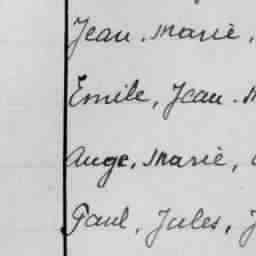 Jean. Marie,
Emile, Jean.
Ange, Marie,
Paul, Jules,